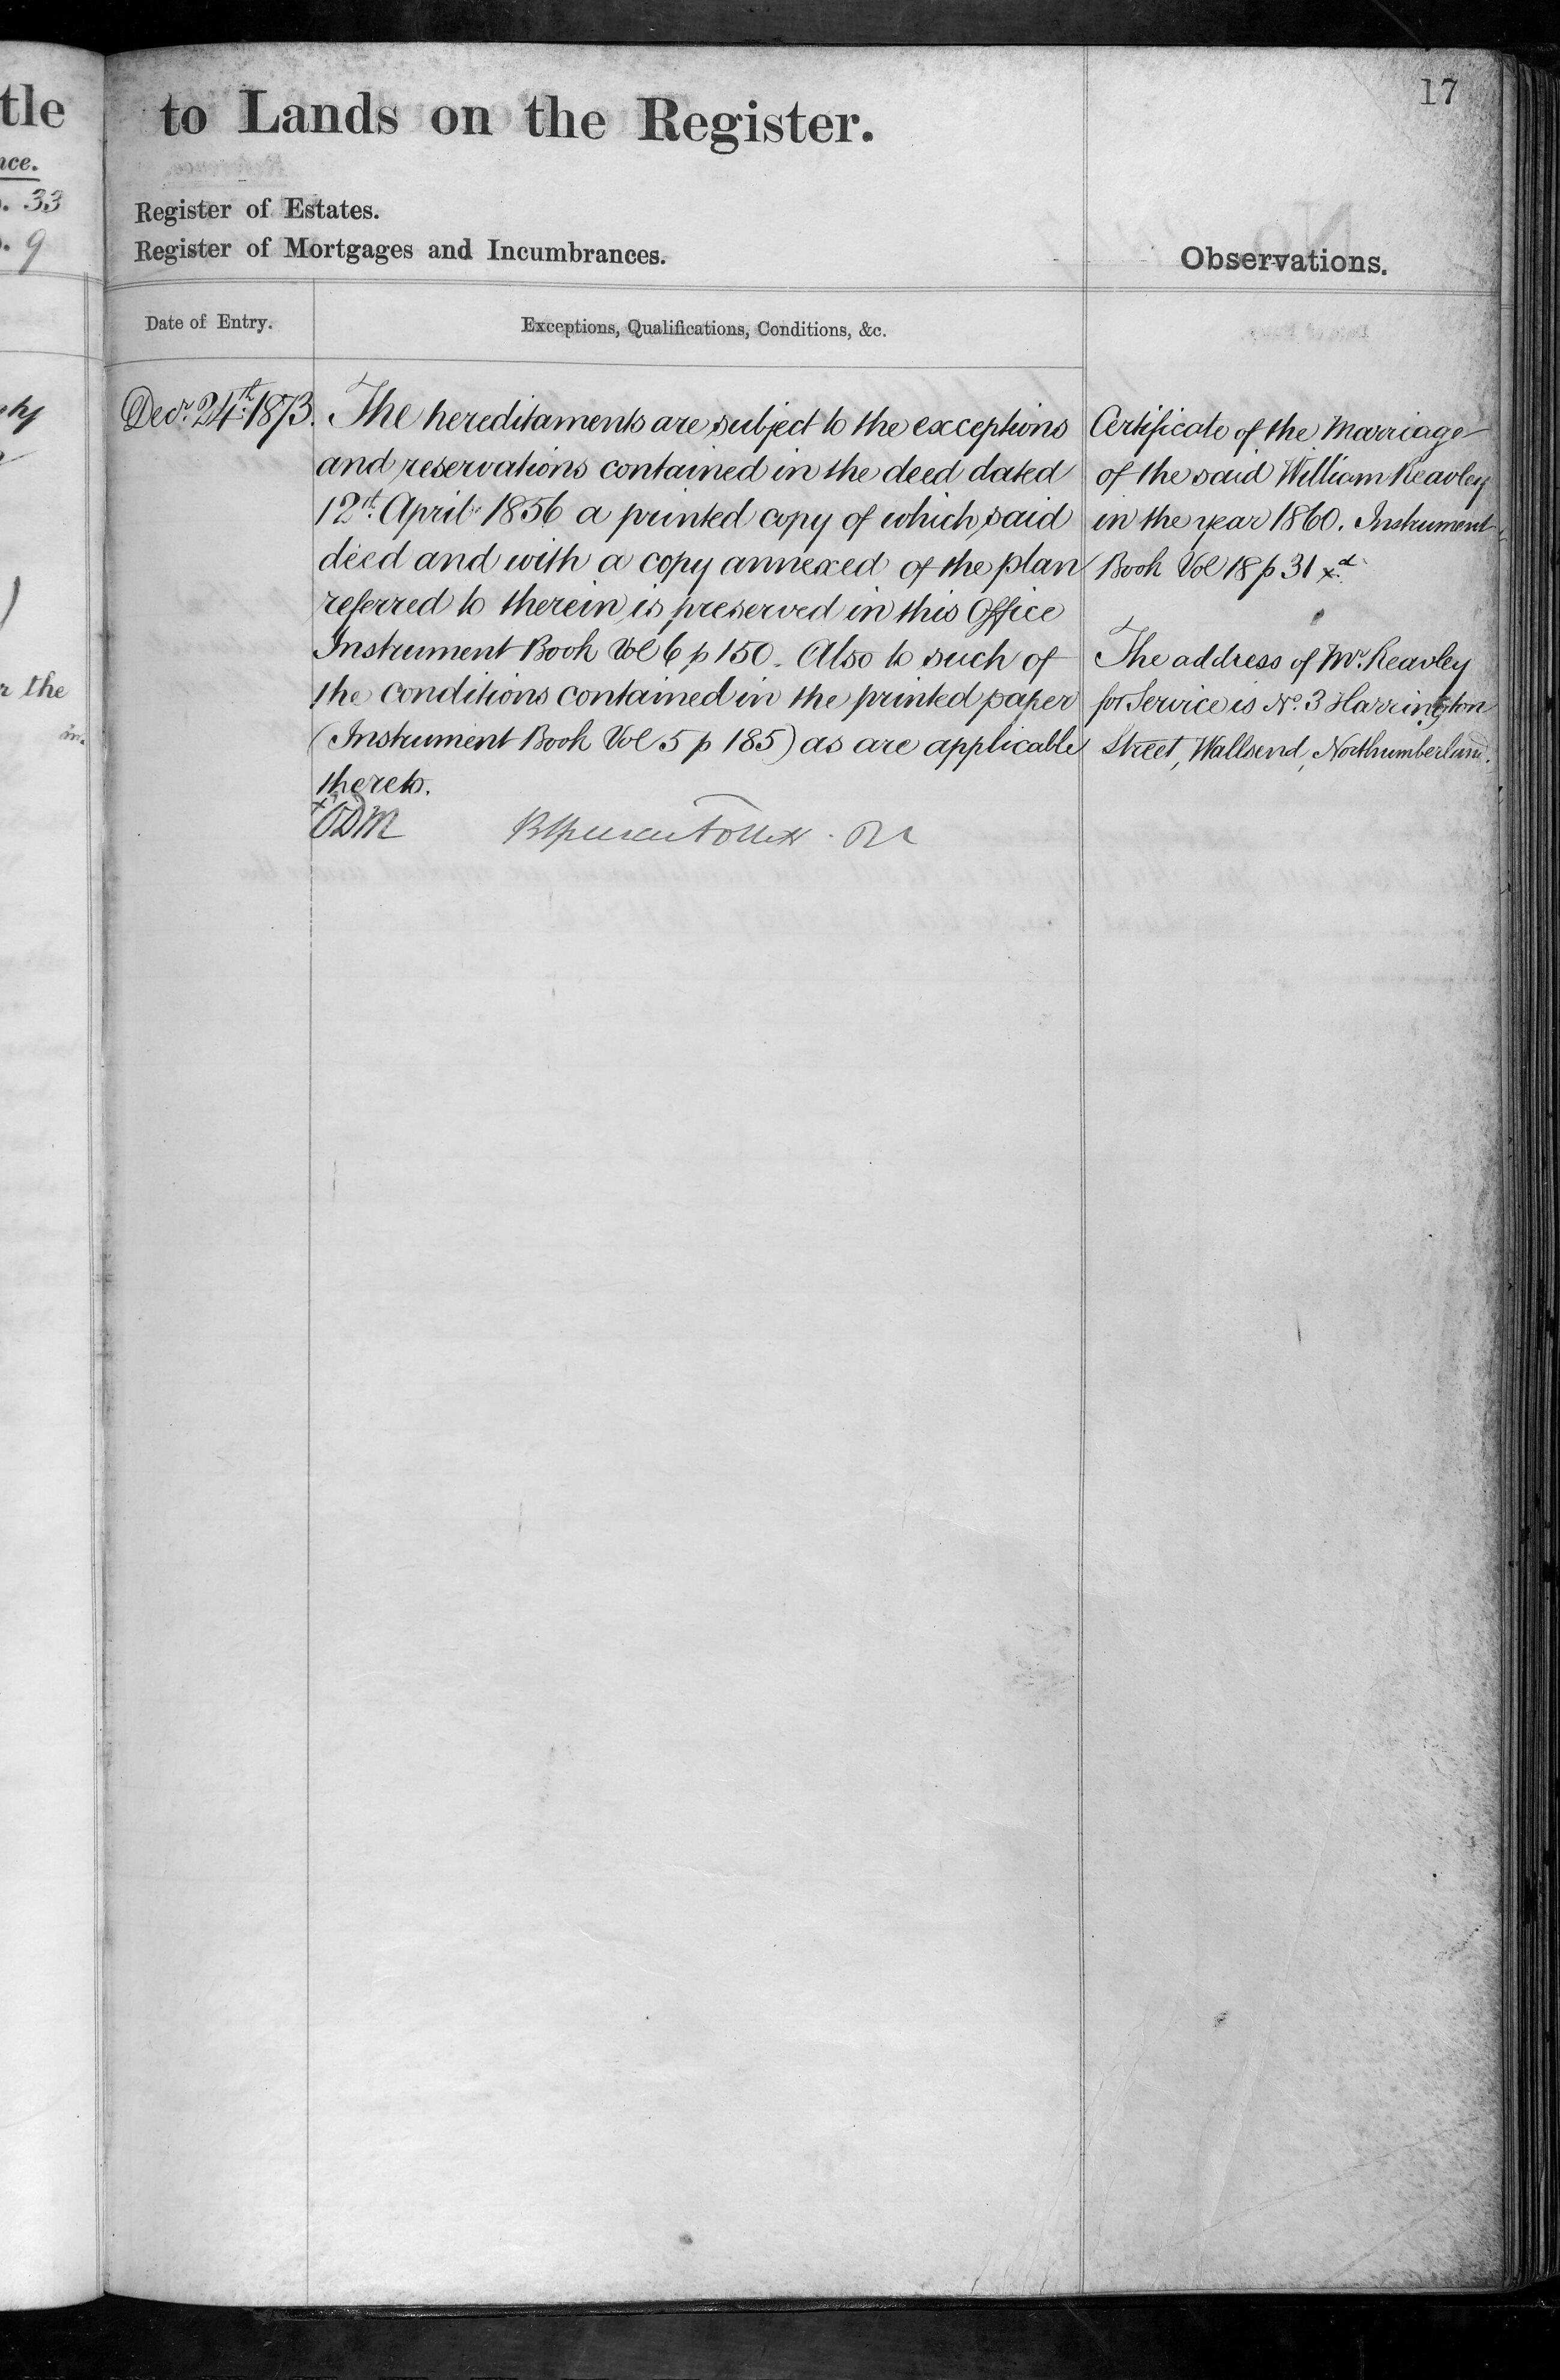 tle
nce.
33
9
r the
17
to Lands on the Register.
Register of Estates.
Register of Mortgages and Incumbrances.
Observations.
Date of Entry.
Exceptions, Qualifications, Conditions, &c.
Decr. 24th: 1873.
The hereditaments are subject to the exceptions
and reservations contained in the deed dated
12th. April 1856 a printed copy of which said
deed and with a copy annexed of the plan
referred to therein is preserved in this Office
Instrument Book Vol 6 p 150. Also to such of
the conditions contained in the printed paper
(Instrument Book Vol 5 p 185) as are applicable
thereto.
Certificate of the Marriage
of the said William Reavley
in the year 1860. Instrument
Book Vol 18 p 31 xd.
The address of Mr. Reavley
for Service is No. 3 Harrington
Street, Wallsend, Northumberland.